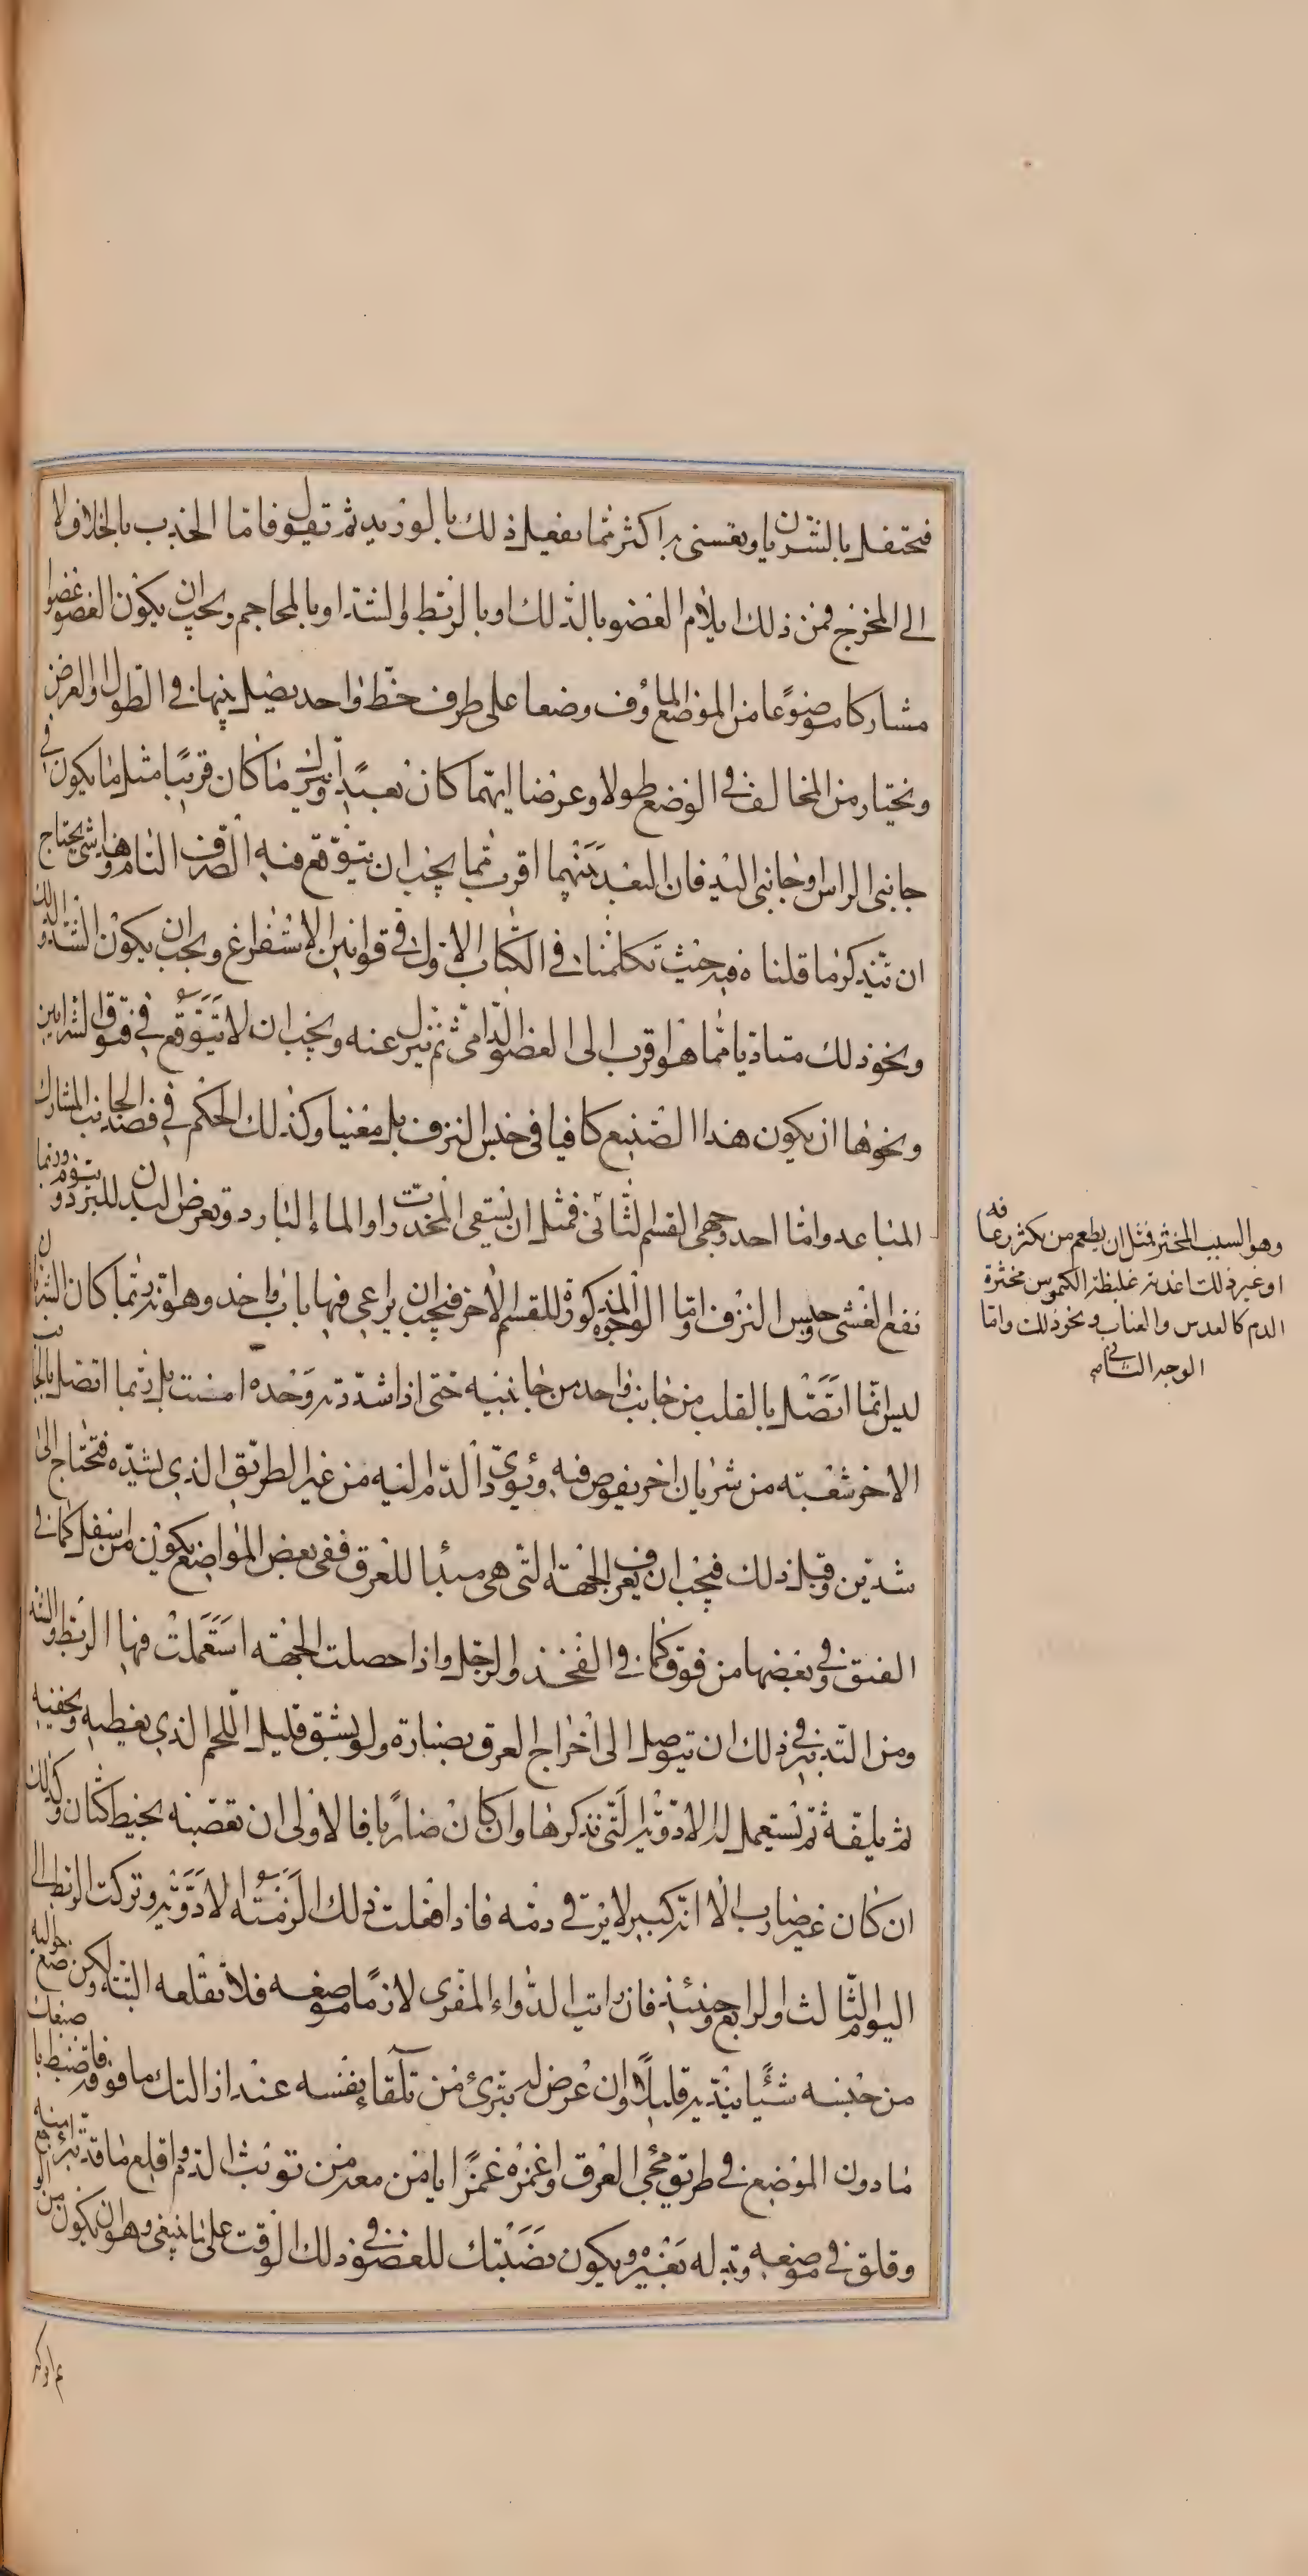 فتحتفل بالشريان ويعتنى به اكثر مما يفعل ذلك بالوريد ثم نقول فاما الجذب بالخلاف لا
الى المخرج فمن ذلك ايلام العضو بالدلك او بالربط والشد او بالمحاجم ويجب ان يكون العضو عضوا
مشاركا موضوعا من الموضع الماؤف وضعا على طرف خط واحد يصل بينهما في الطول او العرض
ويختار من المخالف في الوضع طولا وعرضا ايهما كان بعيدا ويترك ما كان قريبا مثل ما يكون في
جانبي الراس او جانبي اليد فان البعد بينهما اقرب مما يجب ان يتوقع منه الصرف التام وهذا شى يحتاج
ان تتذكر ما قلنا فيه حيث تكلمنا في الكتاب الاول في قوانين الاستفراغ ويجب ان يكون الشد والدلك
ونحو ذلك متاديا مما هو اقرب الى العضو الدامى ثم ينزل عنه ويجب ان لا يتوقع في فتوق الشرايين
ونحوها ان يكون هذا الصنيع كافيا في حبس النزف بل مغنيا وكذلك الحكم في فصد الجانب المشارك
المتباعد واما احد وجهى القسم الثانى فمثل ان يسقى المخدرات او الماء البارد ويعرض البدن للبرد وينوم وربما
نفع الغشى وحبس النزف واما الوجوه المذكورة للقسم الاخر فيجب ان يراعى فيها باب واحد وهو انه ربما كان الشريان
ليس انما اتصل بالقلب من جانب واحد من جانبيه حتى اذا شددته وحده امنت بل ربما اتصل بالجانب
الاخر شعبته من شريان اخر يفوص فيه ويؤدى الدم اليه من غير الطريق الذي يشده فتحتاج الى
شدتين وقبل ذلك فيجب ان يعرف الجهة التي هي مبدا للعرق ففى بعض المواضع يكون من اسفل كما في
العنق وفي بعضها من فوق كما في الفخذ والرجل واذا حصلت الجهة استعملت فيها الربط والشد
ومن التدبير في ذلك ان يتوصل الى اخراج العرق بصنارة ولو بشق قليل اللحم الذي يغطيه ويخفيه
ثم يلفه ثم تستعمل له الادوية التي نذكرها وان كان ضاربا فالاولى ان تعصبه بخيط كتان وكذلك
ان كان غير ضارب الا انه كبير لا يرقى دمه فاذا فعلت ذلك الزمته الادوية وتركت الربط الى
اليوم الثالث او الرابع وحينئذ فان رايت الدواء المغرى لازما موضعه فلا تقلعه البتة ولكن ضع حواليه
من جنسه شيئا ينديه قليلا وان عرض له تبرئ من تلقاء نفسه عند ازالتك ما فوقه فاضبط باصبعك
ما دون الموضع في طريق مجى العرق واغمزه غمزا يامن معه من توثب الدم واقلع ما قد تبرا منه
وقلق في موضعه وبدله بغيره ويكون نصبتك للعضو في ذلك الوقت على ما ينبغى وهو ان يكون من
وهو السبب المخثر فمثل ان يطعم من يكثر رعافه
او غير ذلك اغذية غليظة الكيموس مخثرة
الدم كالعدس والعناب ونحو ذلك واما
الوجه الثاني